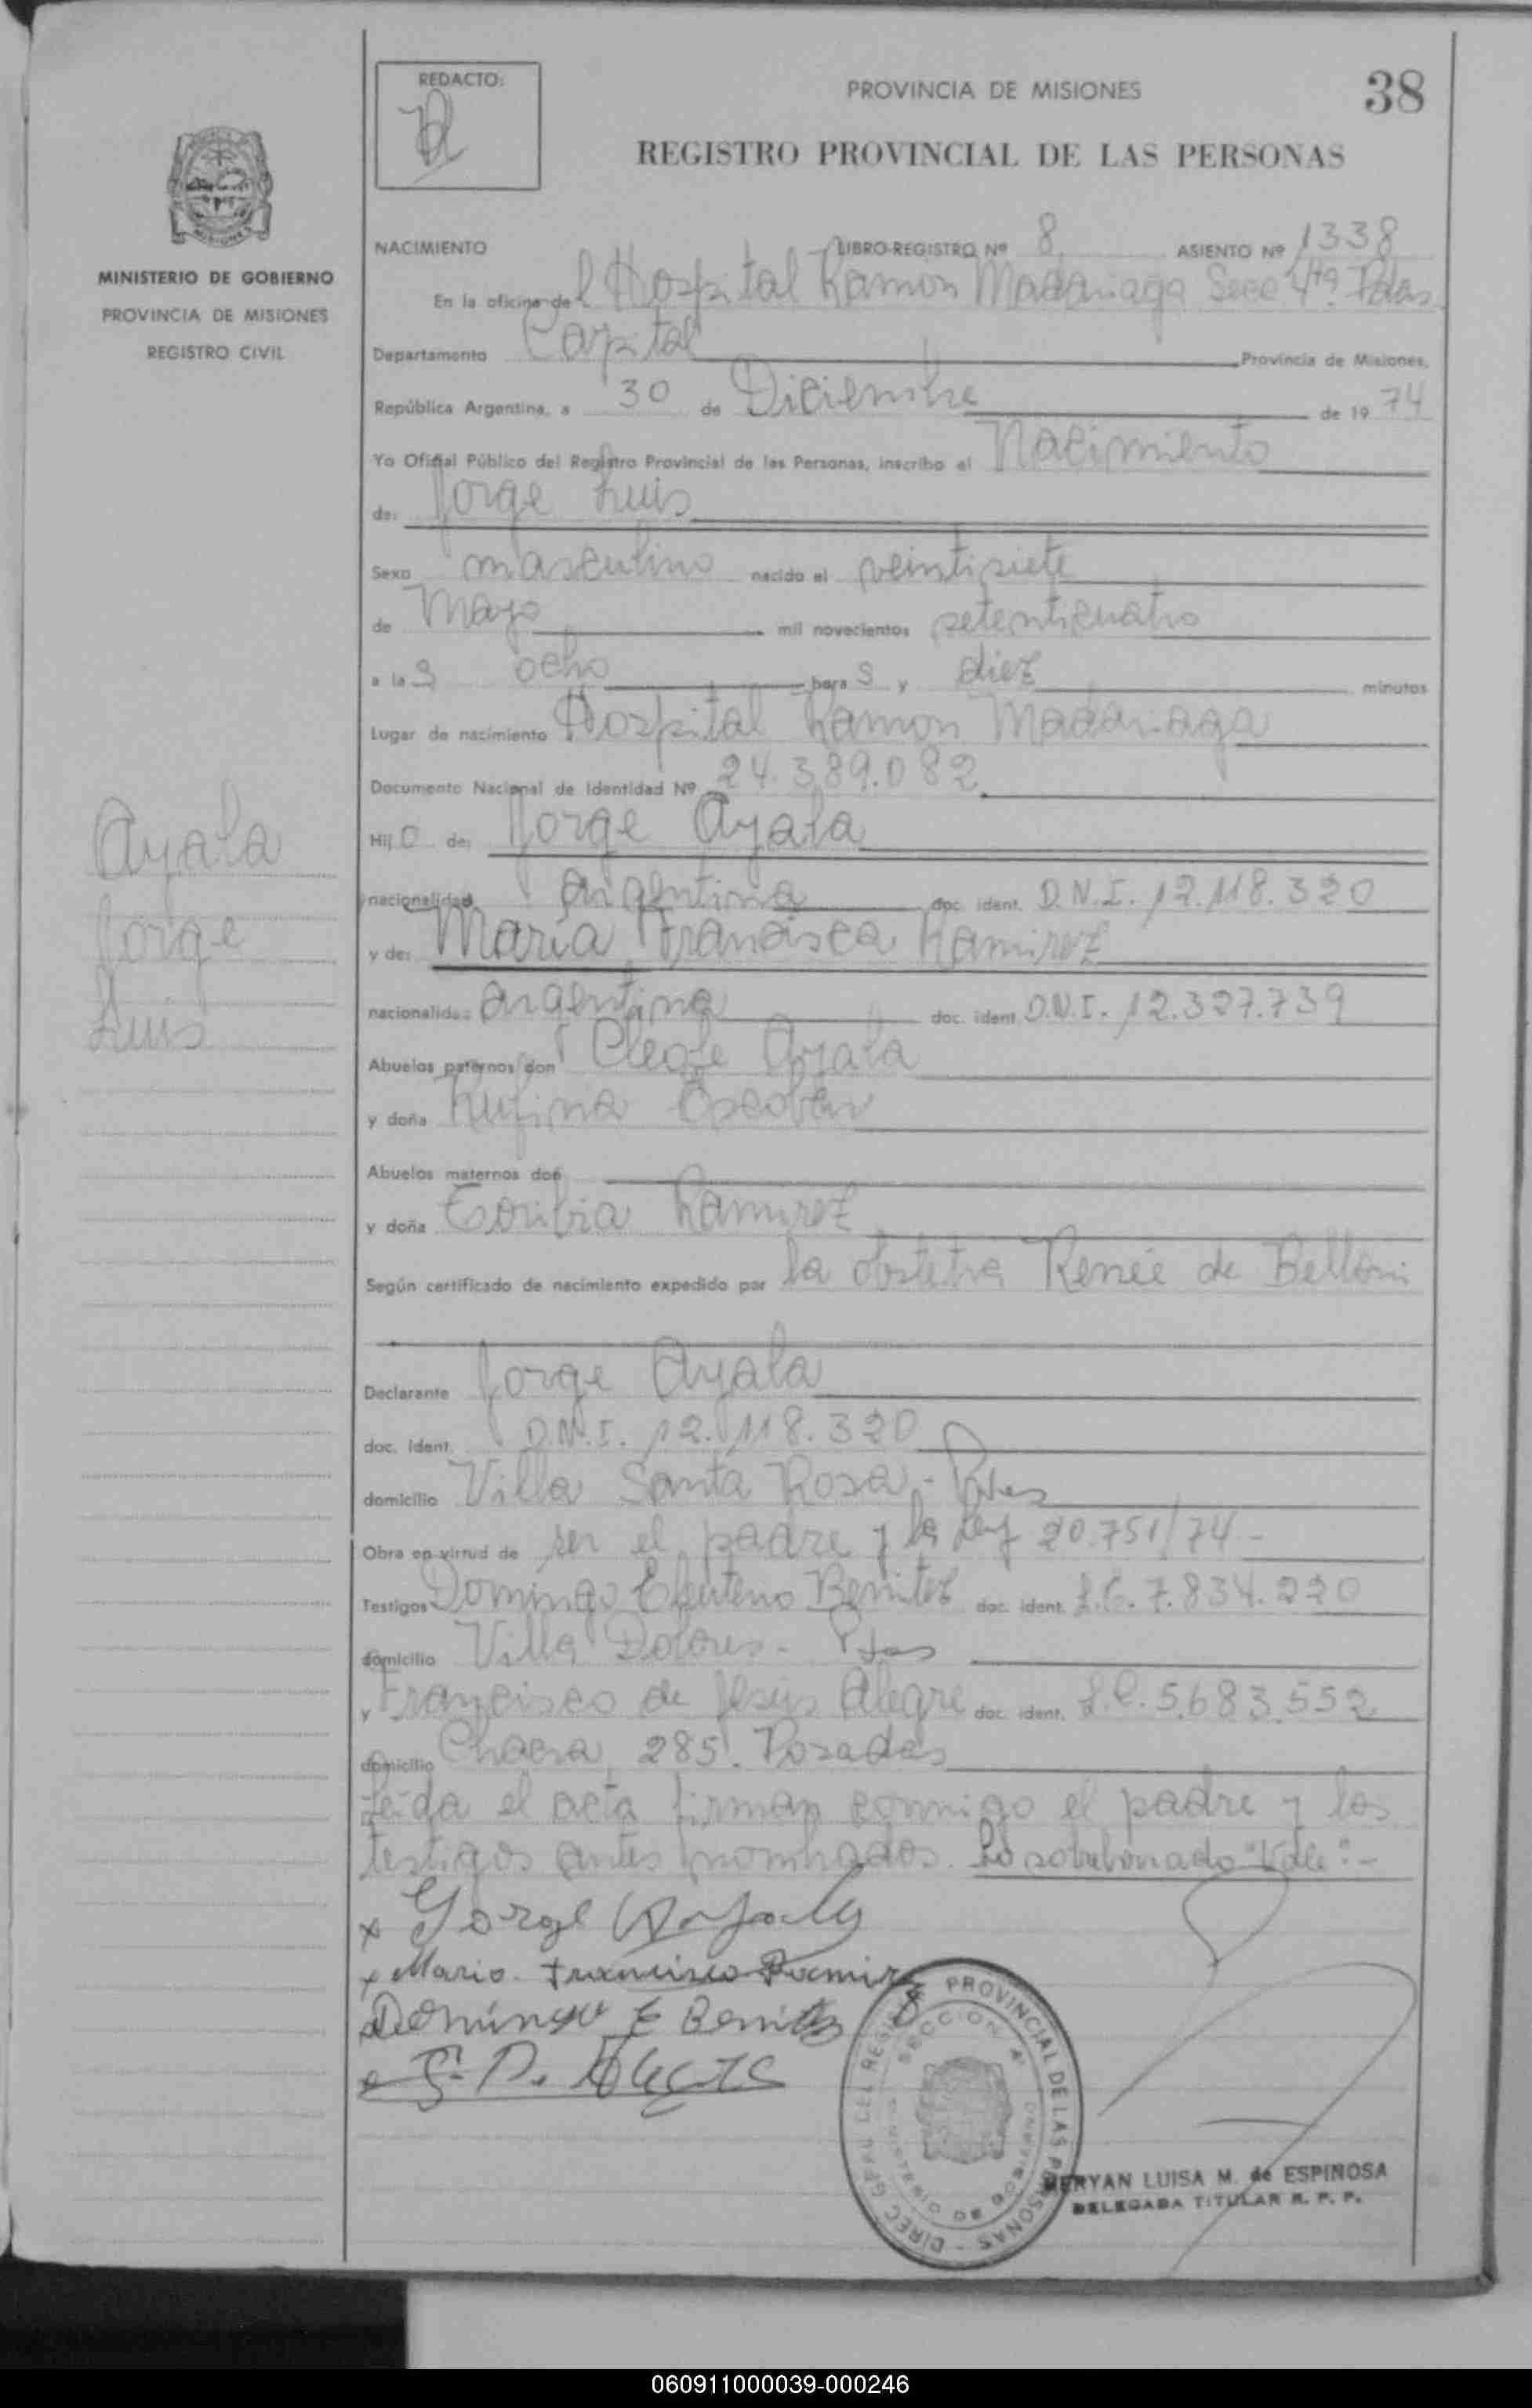 REDACTO:
PROVINCIA DE MISIONES
38
REGISTRO PROVINCIAL DE LAS PERSONAS
MINISTERIO DE GOBIERNO
PROVINCIA DE MISIONES
REGISTRO CIVIL
NACIMIENTO LIBRO-REGISTRO Nº 8 ASIENTO Nº 1338
En la oficina del Hospital Ramon Madariaga Secc 4ta. Pdas.
Departamento Capital Provincia de Misiones,
República Argentina, a 30 de Diciembre de 1974
Yo Oficial Público del Registro Provincial de las Personas, inscribo el Nacimiento
de: Jorge Luis
Sexo masculino nacido el veintisiete
de Mayo mil novecientos setenticuatro
a las ocho horas y diez minutos
Lugar de nacimiento Hospital Ramon Madariaga
Documento Nacional de Identidad Nº 24.389.082
Hijo de: Jorge Ayala
nacionalidad argentina doc. ident. D.N.I. 12.118.320
y de: Maria Francisca Ramirez
nacionalidad argentina doc. ident. D.N.I. 12.327.739
Abuelos paternos don Cleofe Ayala
y doña Rufina Escobar
Abuelos maternos don
y doña Toribia Ramirez
Según certificado de nacimiento expedido por la obstetra Renée de Belloni
Declarante Jorge Ayala
doc. ident. D.N.I. 12.118.320
domicilio Villa Santa Rosa - Pdas
Obra en virtud de ser el padre y la Ley 20.751/74.-
Testigos Domingo Benitez doc. ident. L.E. 7.834.220
domicilio Villa Dolores - Pdas
y Francisco de Jesus Alegre doc. ident. L.E. 5.683.552
domicilio Chacra 285. Posadas
Leida el acta firman conmigo el padre y los
testigos antes nombrados. Lo sobreborrado "Vale".-
Ayala
Jorge
Luis
x Jorge Ayala
x Maria Francisca Ramirez
Domingo E Benitez
DIREC. GRAL. DEL REGISTRO PROVINCIAL DE LAS PERSONAS
SECCION 4ª
MINISTERIO DE GOBIERNO
MERYAN LUISA M. de ESPINOSA
DELEGADA TITULAR R. P. P.
060911000039-000246